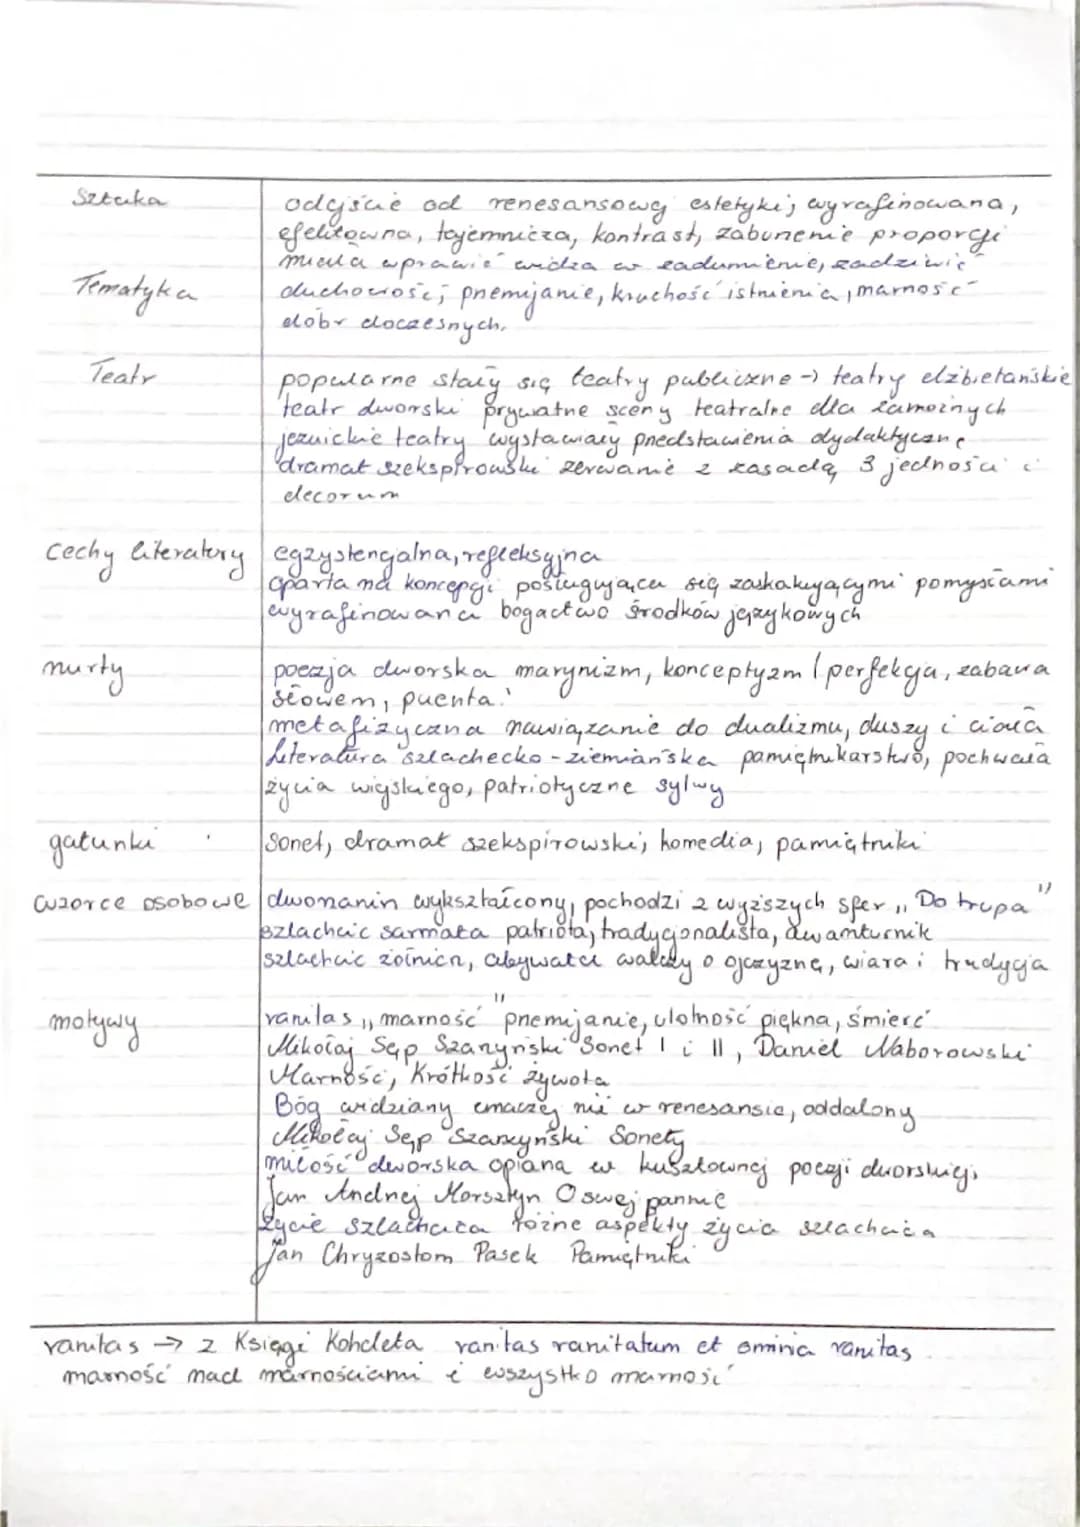 Sztuka odejście od renesansowej estetyki; wyrafinowana,
efektowna, tajemnicza, kontrast, zaburzenie proporcji
miała wprawić widza w zadumienie, zadziwić
Tematyka duchowość; przemijanie, kruchość istnienia, marność
dóbr doczesnych.
Teatr popularne stały się teatry publiczne → teatry elżbietańskie
teatr dworski prywatne sceny teatralne dla zamożnych
jezuickie teatry wystawiały przedstawienia dydaktyczne
dramat szekspirowski zerwanie z zasadą 3 jedności i
decorum
Cechy literatury egzystencjalna, refleksyjna
oparta na koncepcji posługująca się zaskakującymi pomysłami
wyrafinowana bogactwo środków językowych
nurty poezja dworska marynizm, konceptyzm / perfekcja, zabawa
słowem, puenta.
metafizyczna nawiązanie do dualizmu, duszy i ciała
literatura szlachecko-ziemiańska pamiętnikarstwo, pochwała
życia wiejskiego, patriotyczne sylwy
gatunki sonet, dramat szekspirowski; komedia, pamiętniki
wzorce osobowe dworzanin wykształcony, pochodzi z wyższych sfer „Do trupa"
szlachcic sarmata patriota, tradycjonalista, awanturnik
szlachcic żołnierz, obywatel walczy o ojczyznę, wiara i tradycja
motywy vanitas „marność" przemijanie, ulotność piękna, śmierć
Mikołaj Sęp Szarzyński Sonet I i II, Daniel Naborowski
Marność, Krótkość żywota
Bóg widziany inaczej niż w renesansie, oddalony
Mikołaj Sęp Szarzyński Sonety
miłość dworska opiana w kusztownej poezji dworskiej,
Jan Andrzej Morsztyn O swej pannie
życie szlachcica różne aspekty życia szlachcica
Jan Chryzostom Pasek Pamiętniki
vanitas → z Księgi Koheleta vanitas vanitatum et omnia vanitas
marność nad marnościami i wszystko marność